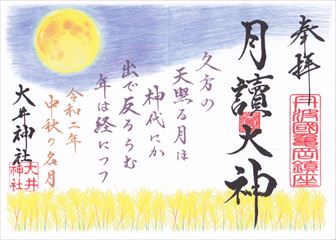 奉拝
丹波國亀岡鎮座
月讀大神
久方の
天照る月は
神代にか
出で反るらむ
年は経につつ
令和二年
中秋の名月
大井神社
大井
神社